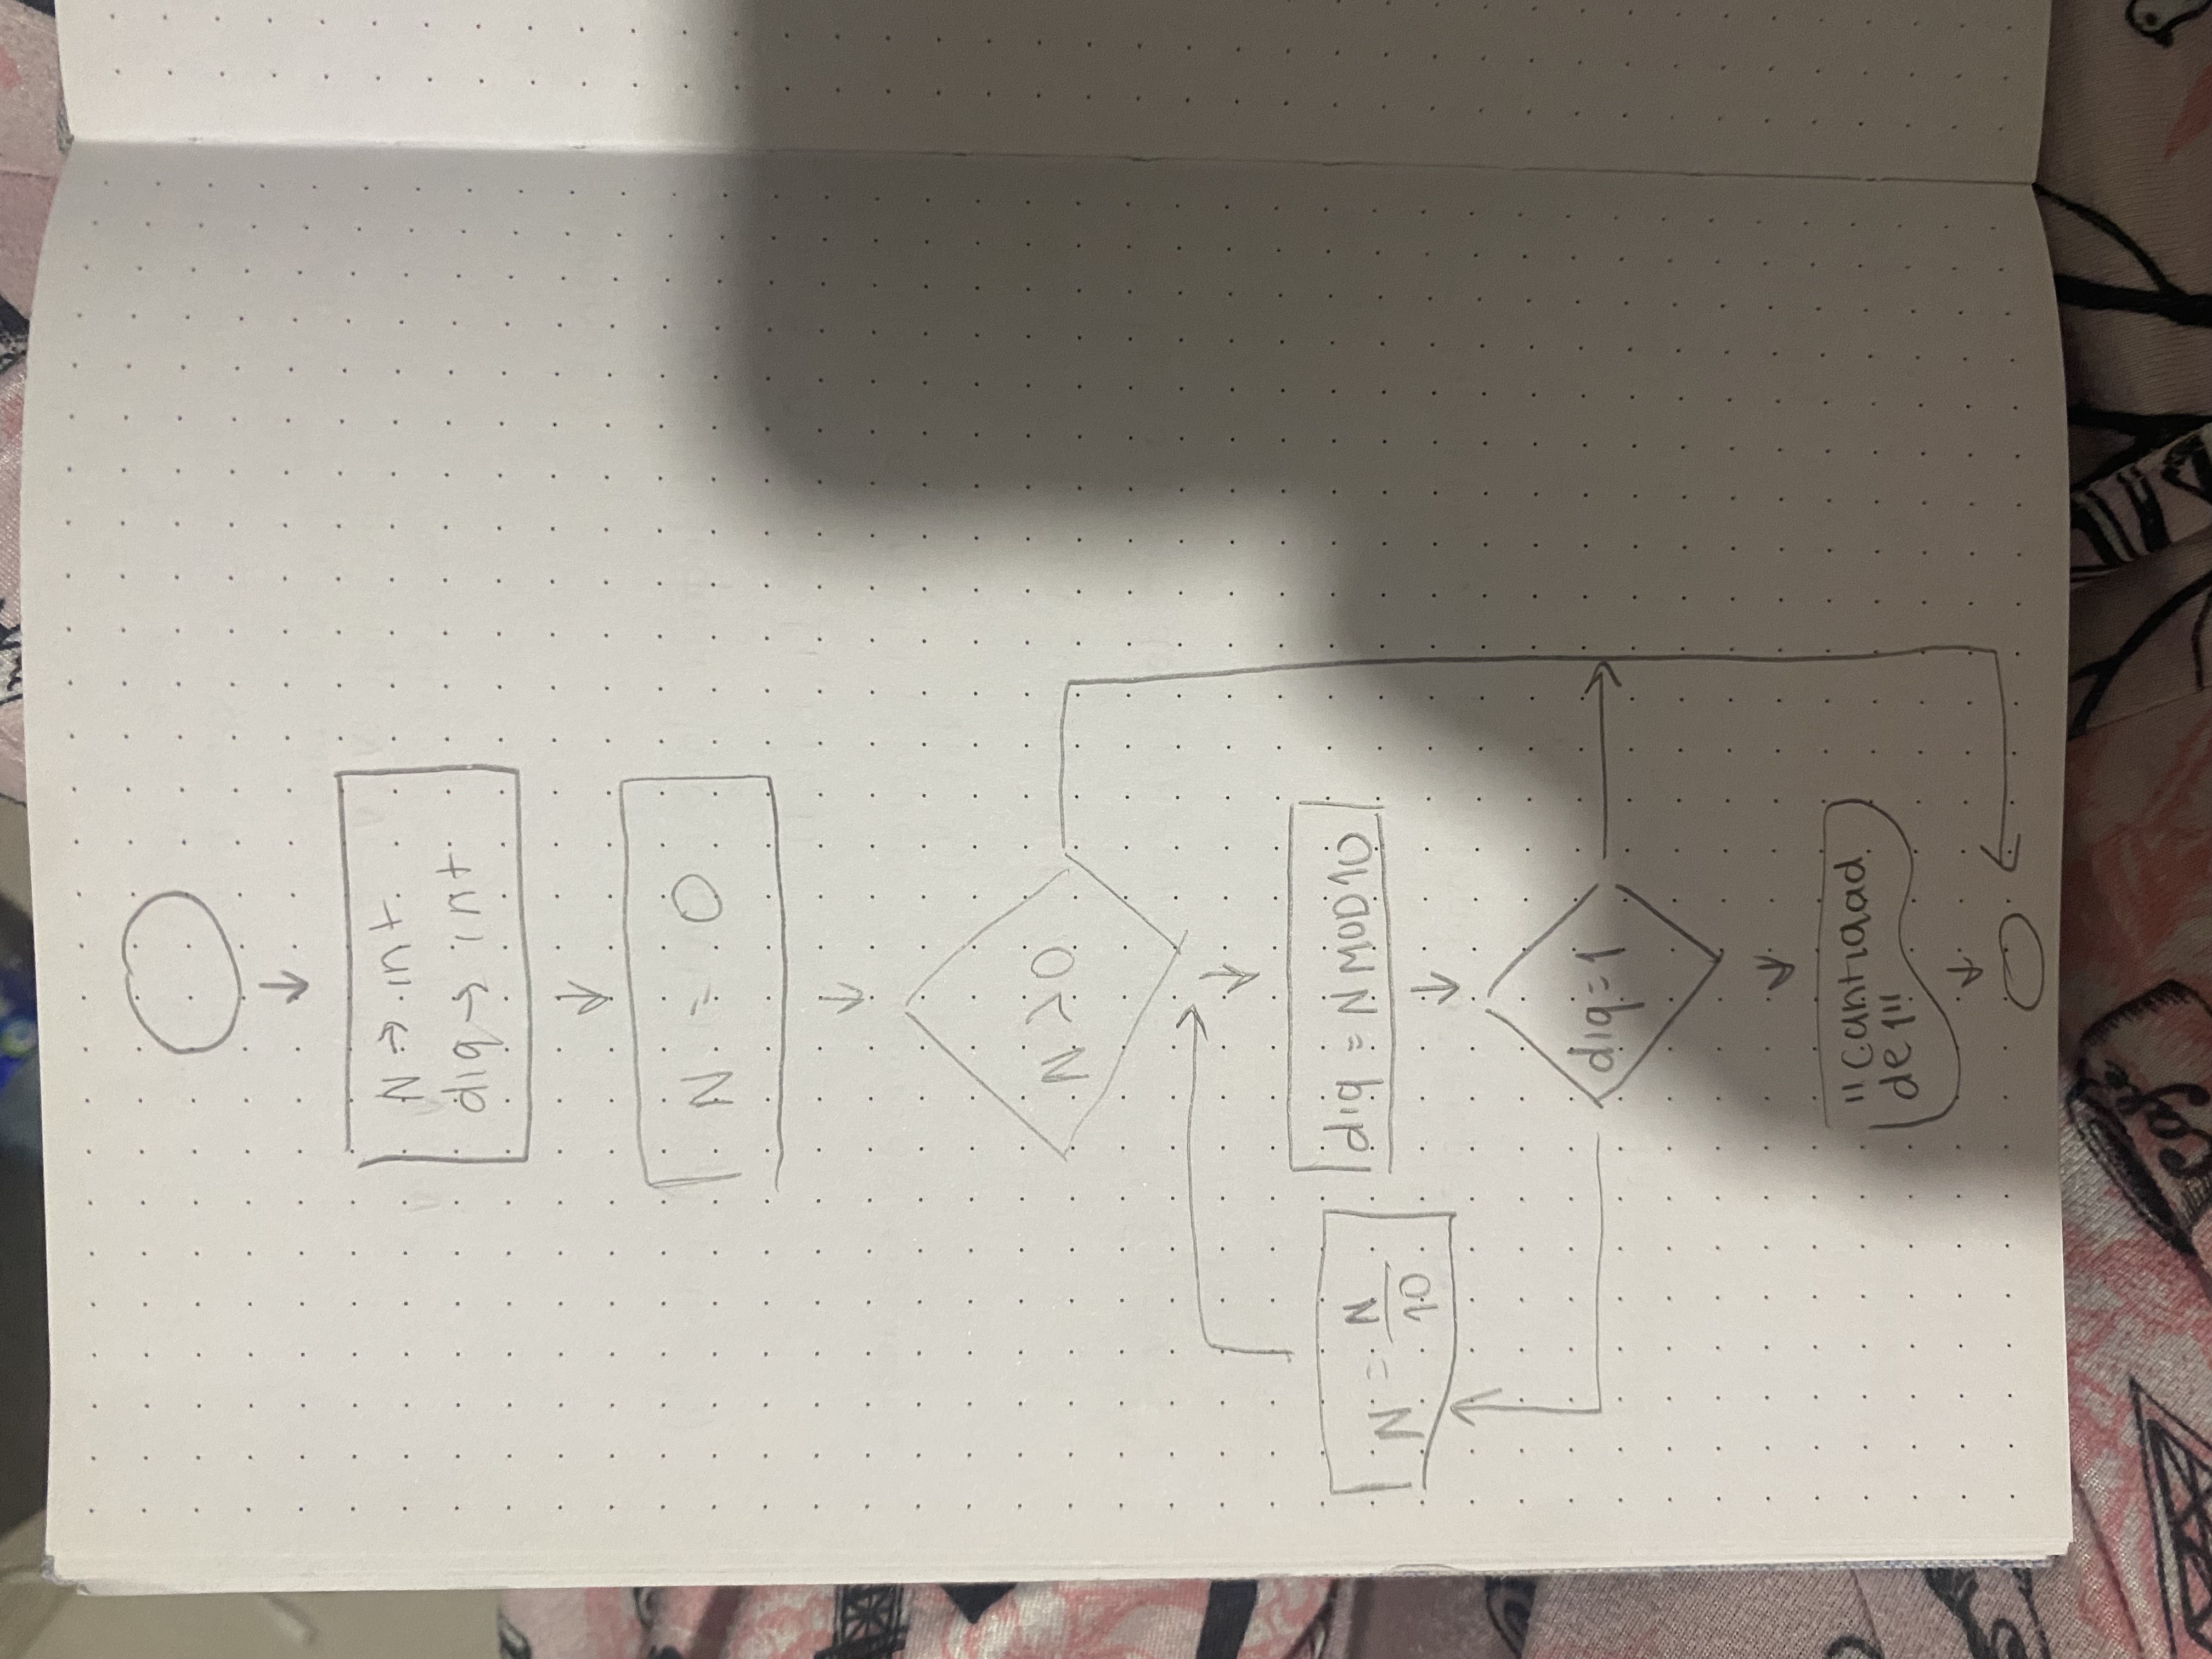 N → int
dig → int
N = 0
N > 0
dig = N MOD 10
N = N
10
dig = 1
"Cantidad
de 1"
Café